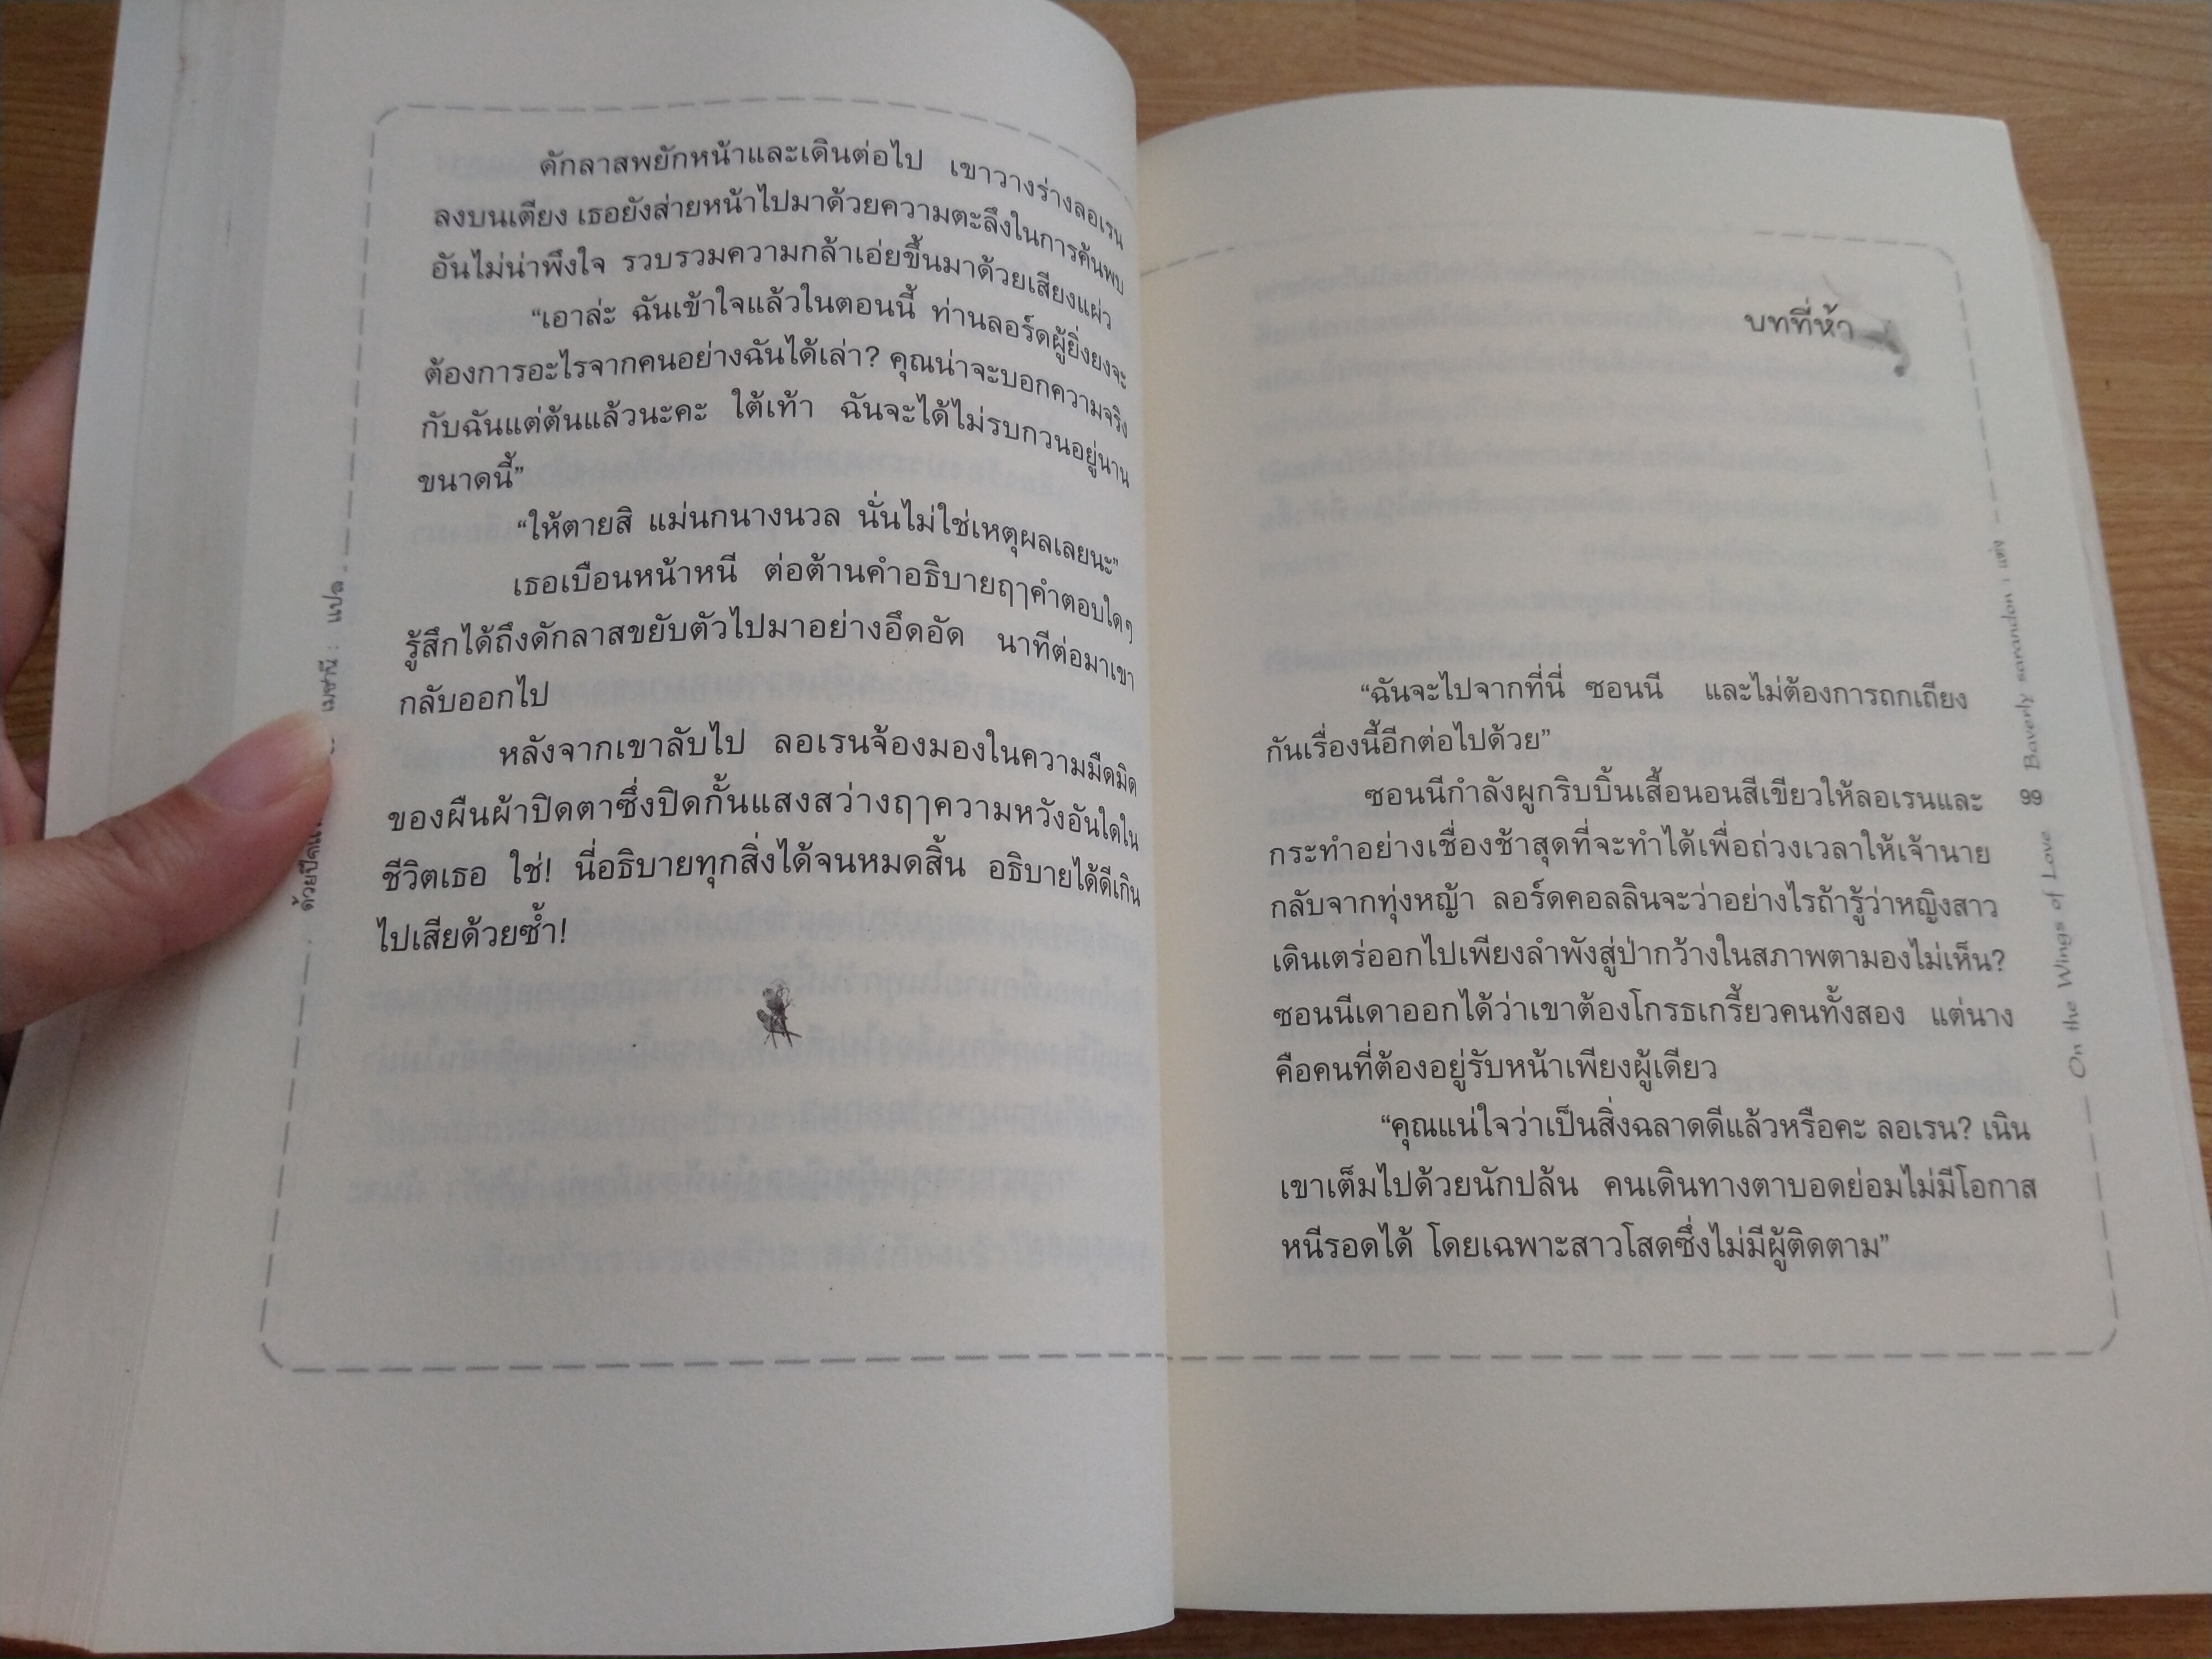 ดักลาสพยักหน้าและเดินต่อไป เขาวางร่างลอเรน
ลงบนเตียง เธอยังส่ายหน้าไปมาด้วยความตะลึงในการค้นพบ
อันไม่น่าพึงใจ รวบรวมความกล้าเอ่ยขึ้นมาด้วยเสียงแผ่ว
“เอาล่ะ ฉันเข้าใจแล้วในตอนนี้ ท่านลอร์ดผู้ยิ่งยงจะ
ต้องการอะไรจากคนอย่างฉันได้เล่า? คุณน่าจะบอกความจริง
กับฉันแต่ต้นแล้วนะคะ ใต้เท้า ฉันจะได้ไม่รบกวนอยู่นาน
ขนาดนี้”
“ให้ตายสิ แม่นกนางนวล นั่นไม่ใช่เหตุผลเลยนะ”
เธอเบือนหน้าหนี ต่อต้านคำอธิบายฤๅคำตอบใดๆ
รู้สึกได้ถึงดักลาสขยับตัวไปมาอย่างอึดอัด นาทีต่อมาเขา
กลับออกไป
หลังจากเขาลับไป ลอเรนจ้องมองในความมืดมิด
ของผืนผ้าปิดตาซึ่งปิดกั้นแสงสว่างฤๅความหวังอันใดใน
ชีวิตเธอ ใช่! นี่อธิบายทุกสิ่งได้จนหมดสิ้น อธิบายได้ดีเกิน
ไปเสียด้วยซ้ำ!
ด้วยปีก เมซานี : แปล
บทที่ห้า
“ฉันจะไปจากที่นี่ ซอนนี และไม่ต้องการถกเถียง
กันเรื่องนี้อีกต่อไปด้วย”
ซอนนีกำลังผูกริบบิ้นเสื้อนอนสีเขียวให้ลอเรนและ
กระทำอย่างเชื่องช้าสุดที่จะทำได้เพื่อถ่วงเวลาให้เจ้านาย
กลับจากทุ่งหญ้า ลอร์ดคอลลินจะว่าอย่างไรถ้ารู้ว่าหญิงสาว
เดินเตร่ออกไปเพียงลำพังสู่ป่ากว้างในสภาพตามองไม่เห็น?
ซอนนีเดาออกได้ว่าเขาต้องโกรธเกรี้ยวคนทั้งสอง แต่นาง
คือคนที่ต้องอยู่รับหน้าเพียงผู้เดียว
“คุณแน่ใจว่าเป็นสิ่งฉลาดดีแล้วหรือคะ ลอเรน? เนิน
เขาเต็มไปด้วยนักปล้น คนเดินทางตาบอดย่อมไม่มีโอกาส
หนีรอดได้ โดยเฉพาะสาวโสดซึ่งไม่มีผู้ติดตาม”
On the Wings of Love 99 Baverly sarandon : แต่ง